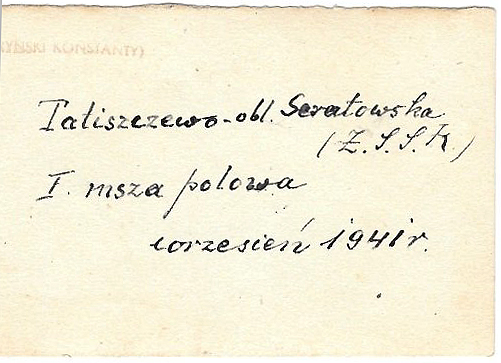 YŃSKI KONSTANTY)
Tatiszczewo-obl. Seratowska
(Z.S.S.R.)
I. msza polowa
wrzesień 1941 r.